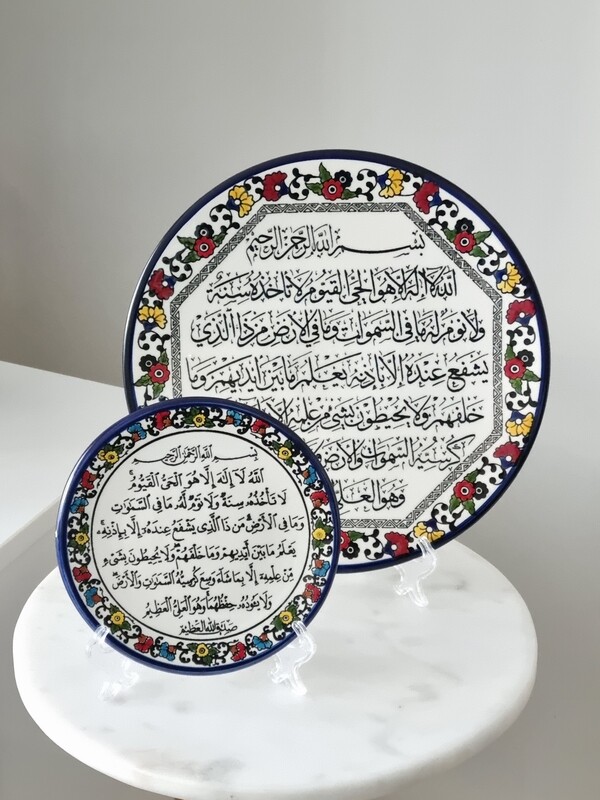 بسم الله الرحمن الرحيم
الله لا اله الا هو الحي القيوم لا تاخذه سنة
ولا نوم له ما في السموات وما في الارض من ذا الذي
يشفع عنده الا باذنه يعلم ما بين ايديهم وما
خلفهم ولا يحيطون بشيء من علمه الا
كرسيه السموات والارض
وهو العلي
بسم الله الرحمن الرحيم
اللَّهُ لَا إِلَهَ إِلَّا هُوَ الْحَيُّ الْقَيُّومُ
لَا تَأْخُذُهُ سِنَةٌ وَلَا نَوْمٌ لَّهُ مَا فِي السَّمَوَاتِ
وَمَا فِي الْأَرْضِ مَن ذَا الَّذِي يَشْفَعُ عِندَهُ إِلَّا بِإِذْنِهِ
يَعْلَمُ مَا بَيْنَ أَيْدِيهِمْ وَمَا خَلْفَهُمْ وَلَا يُحِيطُونَ بِشَيْءٍ
مِّنْ عِلْمِهِ إِلَّا بِمَا شَاءَ وَسِعَ كُرْسِيُّهُ السَّمَوَاتِ وَالْأَرْضَ
وَلَا يَئُودُهُ حِفْظُهُمَا وَهُوَ الْعَلِيُّ الْعَظِيمُ
صدق الله العظيم